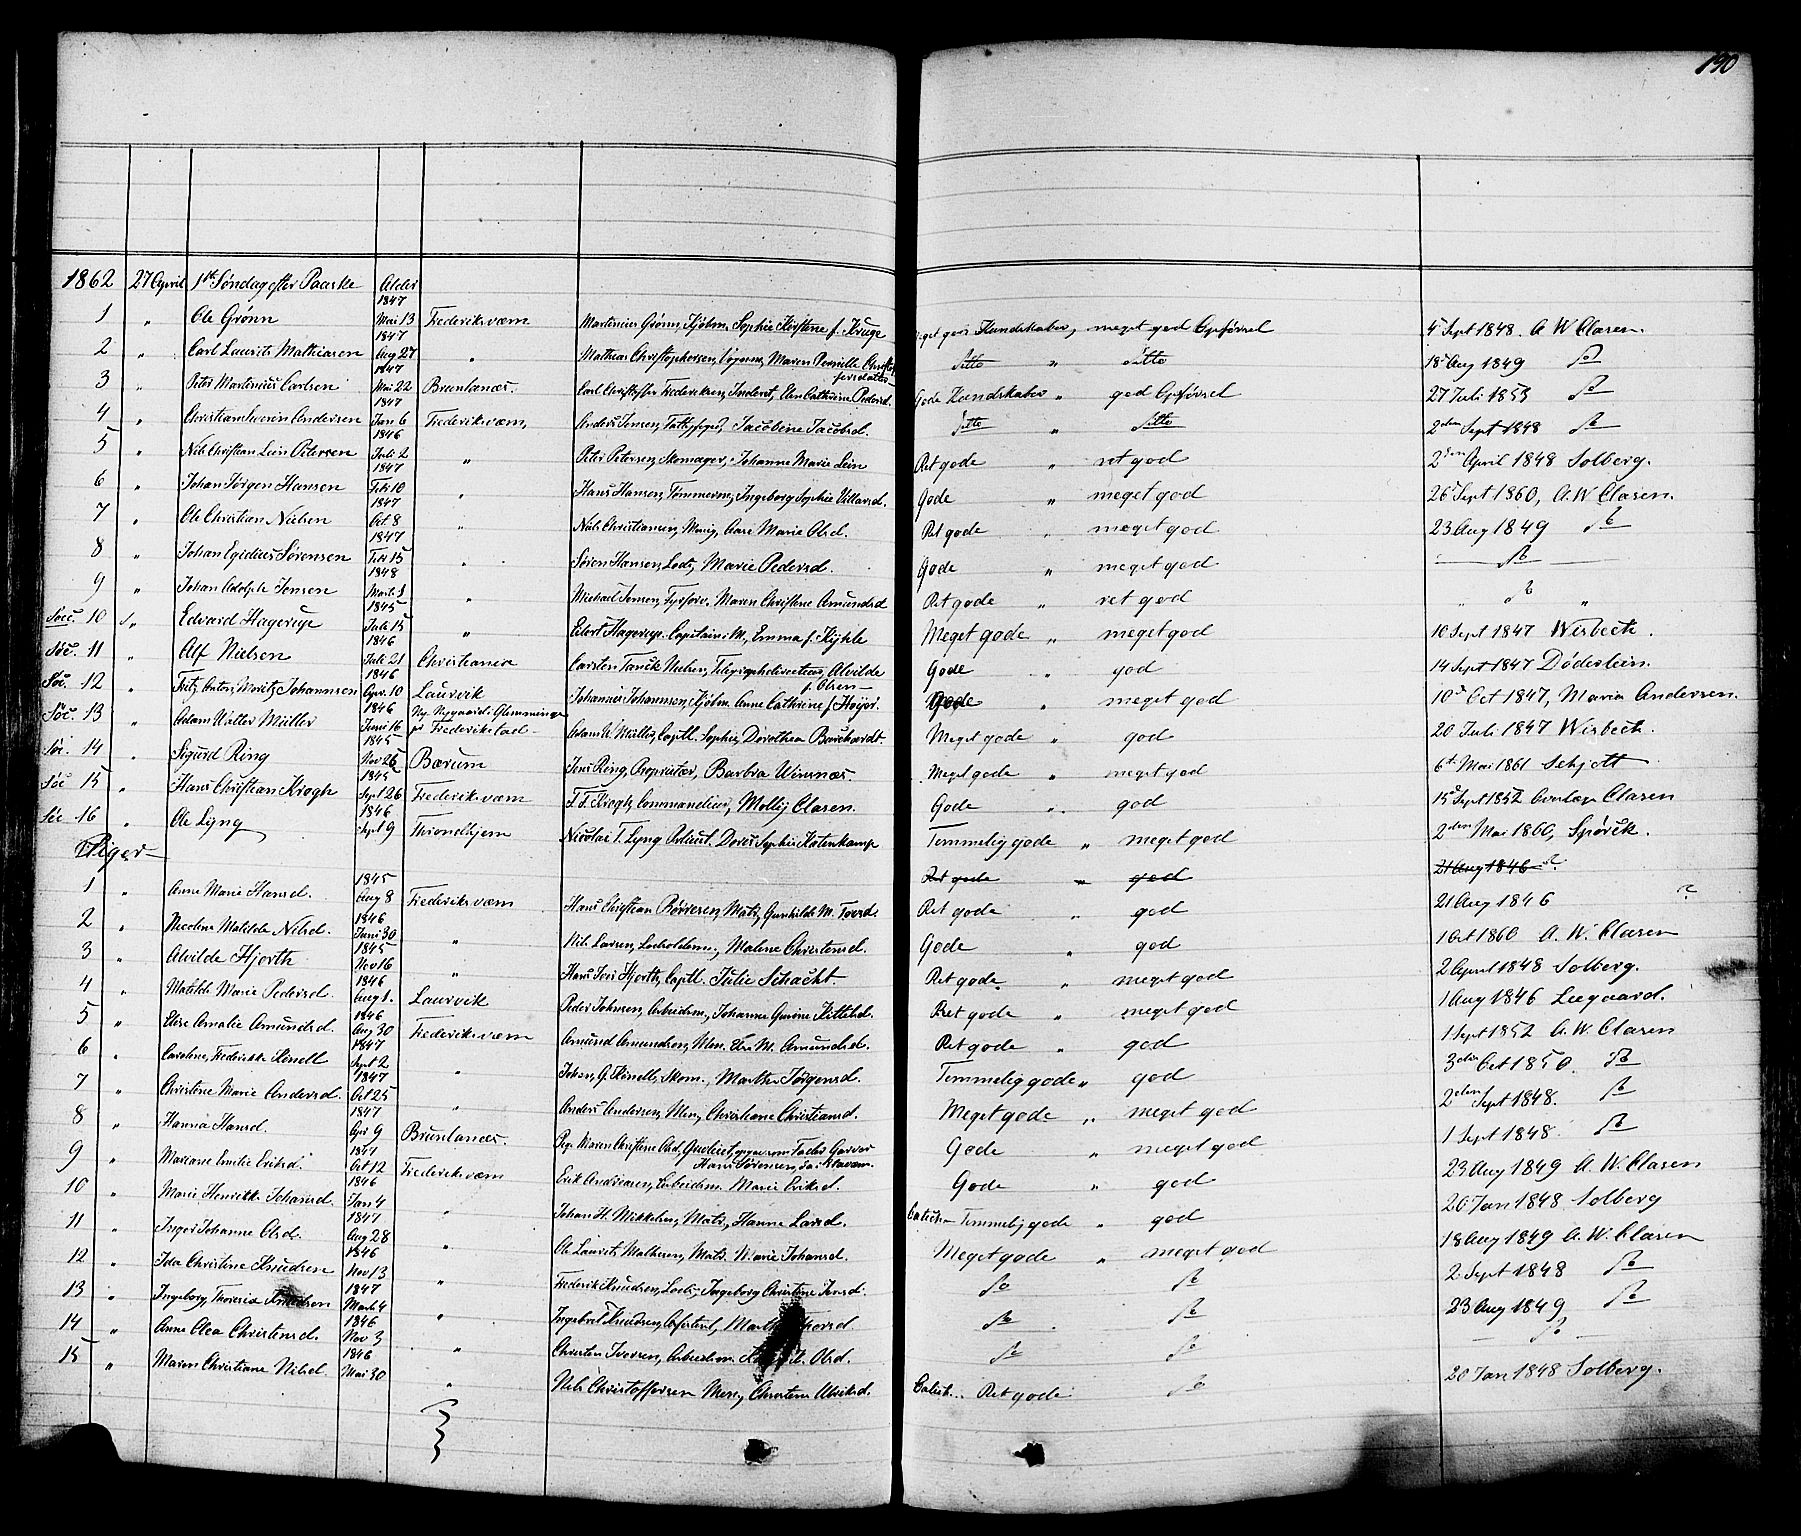 190
1862 27 April 1ste Søndag efter Paaske Alder
1 " Ole Grønn 1847 Mai 13 Frederiksværn Martinius Grønn, Kjøbm. Sophie Kirstine f. Kruge Meget gode Kundskaber, meget god Opførsel 4 Sept 1848. A W Clasen.
2 " Carl Laurits Mathiasen 1847 Aug 27 " Mathias Christophersen, Maren Pernille Christophersdatter Ditto " Ditto 18 Aug 1849 do
3 " Peter Martinius Carlsen 1847 Mai 22 Brunlanæs. Carl Christoffer Frederiksen, Inderst, Elen Cathrine Pedersd. Gode Kundskaber " god Opførsel 27 Juli 1853 do
4 " Christian Severin Andersen 1847 Jan 6 Frederiksværn, Anders Jensen, Jacobine Jacobsd. Ditto " Ditto 2den Sept 1848 do
5 " Nils Christian Lein Petersen 1846 Juli 2 " Peter Petersen, Skomager, Johanne Marie Lein Ret gode " ret god 2den April 1848 Solberg.
6 " Johan Jørgen Hansen 1847 Feb 10 " Hans Hansen, Tømmerm, Ingeborg Sophie Villarsd. Gode " meget god 26 Sept 1860, A. W Clasen.
7 " Ole Christian Nielsen 1847 Oct 8 " Nils Christiansen, Anne Marie Olsd. Ret gode " meget god 23 Aug 1849 do
8 " Johan Egidius Sørensen 1847 Feb 15 " Søren Hansen, Lods, Marie Pedersd. Gode " meget god do
9 " Johan Adolph Jensen 1848 Marts 1 " Michael Jensen, Fyrforv. Maren Christine Amundsd Ret gode " ret god " do "
Soc. 10 " Edvard Hagerup 1845 Juli 15 " Eilert Hagerup. Capitain i M., Emma f. Kjhle Meget gode " meget god 10 Sept 1847 Wisbech.
Soc. 11 " Alf Nielsen 1846 Juli 21 Christiania Carsten Tanck Nielsen, Telegraphdirecteur, Alvilde f. Olsen Gode " god 14 Sept 1847 Døderlein.
Soc. 12 " Fritz Anton, Moritz Johannsen 1846 Apr. 10 Laurvik Johannes Johannsen, Kjøbm. Anne Cathrine f Høyer. Gode " meget god 10d Oct 1847, Maria Andersen.
Soc. 13 " Adam Walter Müller 1846 Juni 16 Ny Nygaard i Glemminge pr Frederikstad Adam W Müller, Captl. Sophie, Dorothea Borchardt. Meget gode " god 20 Juli 1847 Wisbech.
Soc. 14 " Sigurd Ring 1845 Nov 26 Bærum Jens Ring, Proprietær, Barbra Winsnæs. Meget gode " meget god 6te Mai 1861 Schjøtt
Soc 15 " Hans Christian Krogh 1845 Sept 26 Frederiksværn F. F. Krogh, Commandeur, Molly Clasen. Gode " god 15 Sept 1852 Clasen
Soc 16 " Ole Lyng 1846 Sept 9 Throndhjem Nicolai T. Lyng Dorea Sophie Kotenkamp Temmelig gode " meget god 2den Mai 1860, Spørck.
Piger
Ret gode " god 21 Aug 1846
1 " Anne Marie Hansd. 1845 Aug 8 Frederiksværn Hans Christian Børresen, Mats, Gunhilde M. Torsd. Ret gode " god 21 Aug 1846
2 " Nicoline Matilde Nilsd. 1846 Juni 30 " Nils Larsen, Malene Christensd. Gode " god 1 Oct 1860 A. W. Clasen
3 " Alvilde Hjorth 1845 Nov 16 " Hans Jens Hjorth, Captl. Julie Schacht. Ret gode " meget god 2 April 1848 Solberg.
4 " Matilde Marie Pedersd. 1846 Aug 1. Laurvik Peder Johnsen, Arbeidsm., Johanne Gurine Kittilsd. Ret gode " meget god 1 Aug 1846 Leegaard.
5 " Elise Amalie Amundsd. 1846 Aug 30 Frederiksværn Amund Amundsen, Men. Else M. Amundsd. Ret gode " god 1 Sept 1852 A. W. Clasen
6 " Caroline, Frederikke Kinell 1847 Sept 2 " Johan, G. Kinell, Skom., Marthe Jørgensd. Temmelig gode " god 3die Oct 1850. do
7 " Christine Marie Andersd. 1847 Oct 25 " Anders Andersen, Men, Christiane Christiansd. Meget gode " meget god 2den Sept 1848. do
8 " Hanna Hansd. 1847 Apr 9 Brunlanæs. Pige Maren Christine Olsd. Fader Garver Hans Sørensen, Gode " meget god 1 Sept 1848. do
9 " Mariane Emilie Eriksd. 1847 Oct 12 Frederiksværn Erik Andreasen, Arbeidsm. Marie Eriksd. Gode " god 23 Aug 1849 A. W. Clasen
10 " Marie Henrikke Johansd. 1846 Jan 4 " Johan H. Mikkelsen, Mats, Hanne Larsd. Temmelig gode " god 20 Jan 1848 Solberg
11 " Inger Johanne Olsd. 1847 Aug 28 " Ole Laurits Mathesen, Mats. Marie Johansd. Meget gode " meget god 18 Aug 1849 A. W. Clasen
12 " Ida Christine Knudsen 1846 Nov 13 " Frederik Knudsen, Lods, Ingeborg Christine Jensd. do do 2 Sept 1848 do
13 " Ingeborg, Theresia Knudsen 1847 Marts 4 " Ingebret Knudsen, do do 23 Aug 1849 do
14 " Anne Olea Christensd. 1846 Nov 3 " Christen Iversen, Arbeidsm. Olsd. do do do
15 " Maren Christiane Nilsd. 1846 Mai 30 " Nils Christoffersen Men, Christine Ulriksd. Ret gode do 20 Jan 1848 Solberg.